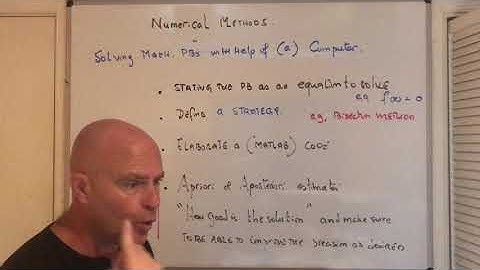 Numerical Methods.
Solving Math. PBs with Help of (a) Computer.
• STATING THE PB as an equation to solve
eg f(x) = 0
• Define a STRATEGY.
eg, Bisection METHOD
• ELABORATE A (MATLAB) CODE
• Apriori & Aposteriori estimate
"How good is the solution" and make sure
TO BE ABLE TO CONTROL THE PRECISION AS DESIRED